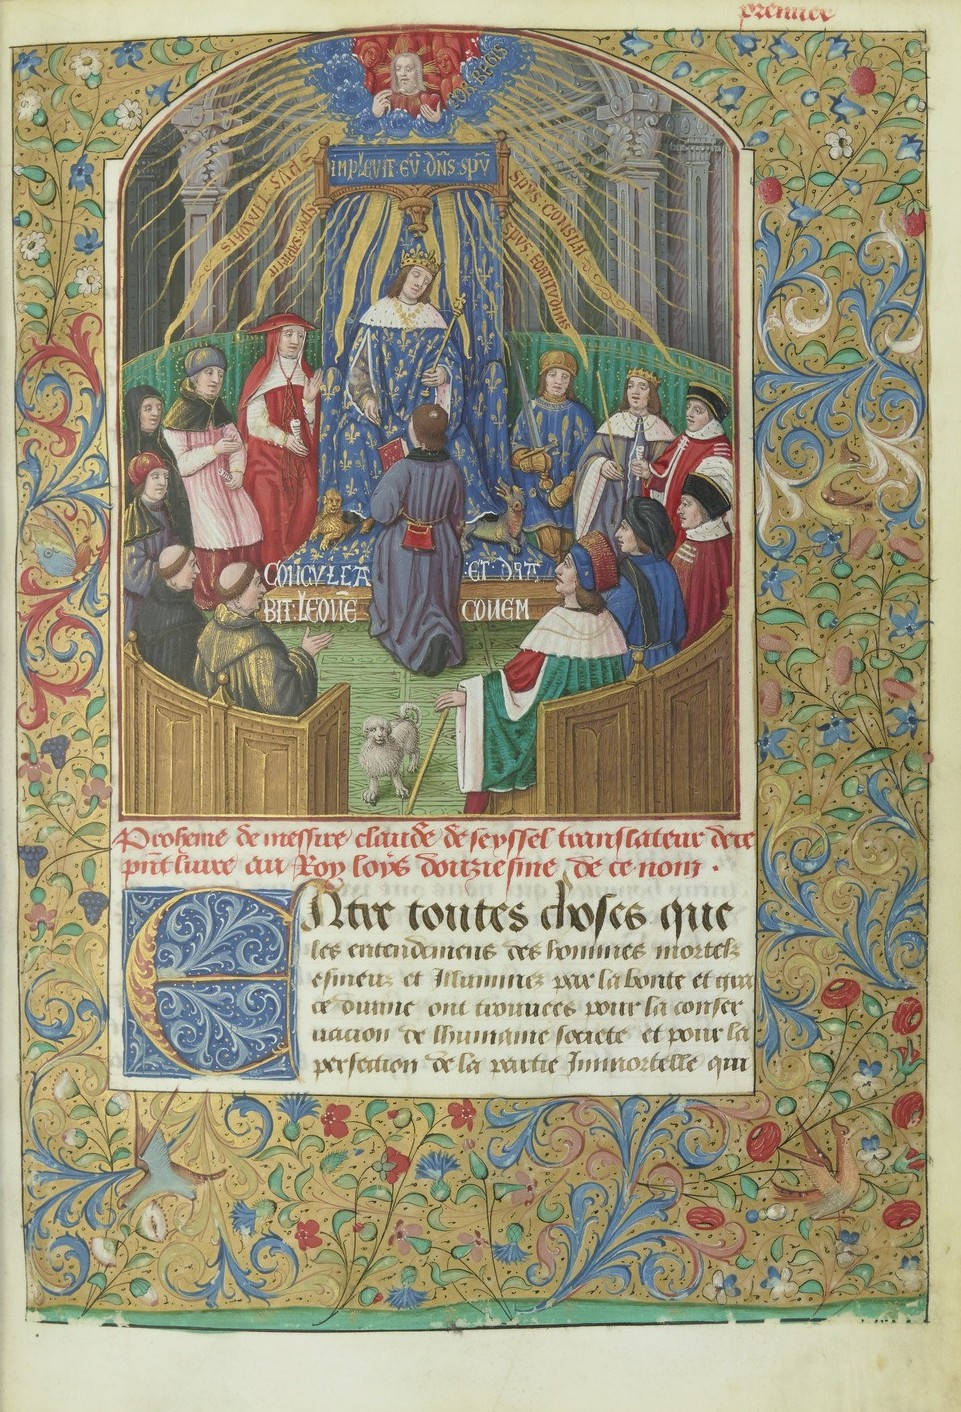 premier
COR REGIS
IMPLEVIT·EŪ·DÑS·SPŪ
SPŪS CONSILII
SPŪS FORTITVDINIS
CONCVLCA ET DRA
BIT·LEONĒ CONEM
Proheme de messire claude de seyssel translateur de ce
pñt liure au Roy loys douziesme de ce nom ·
Entre toutes choses que
les entendemens des hommes mortelz
esmeuz et Illuminez par la bonte et gra
ce diuine ont trouuees pour la conser
uacion de lhumaine societe et pour la
perfection de la partie Immortelle qui